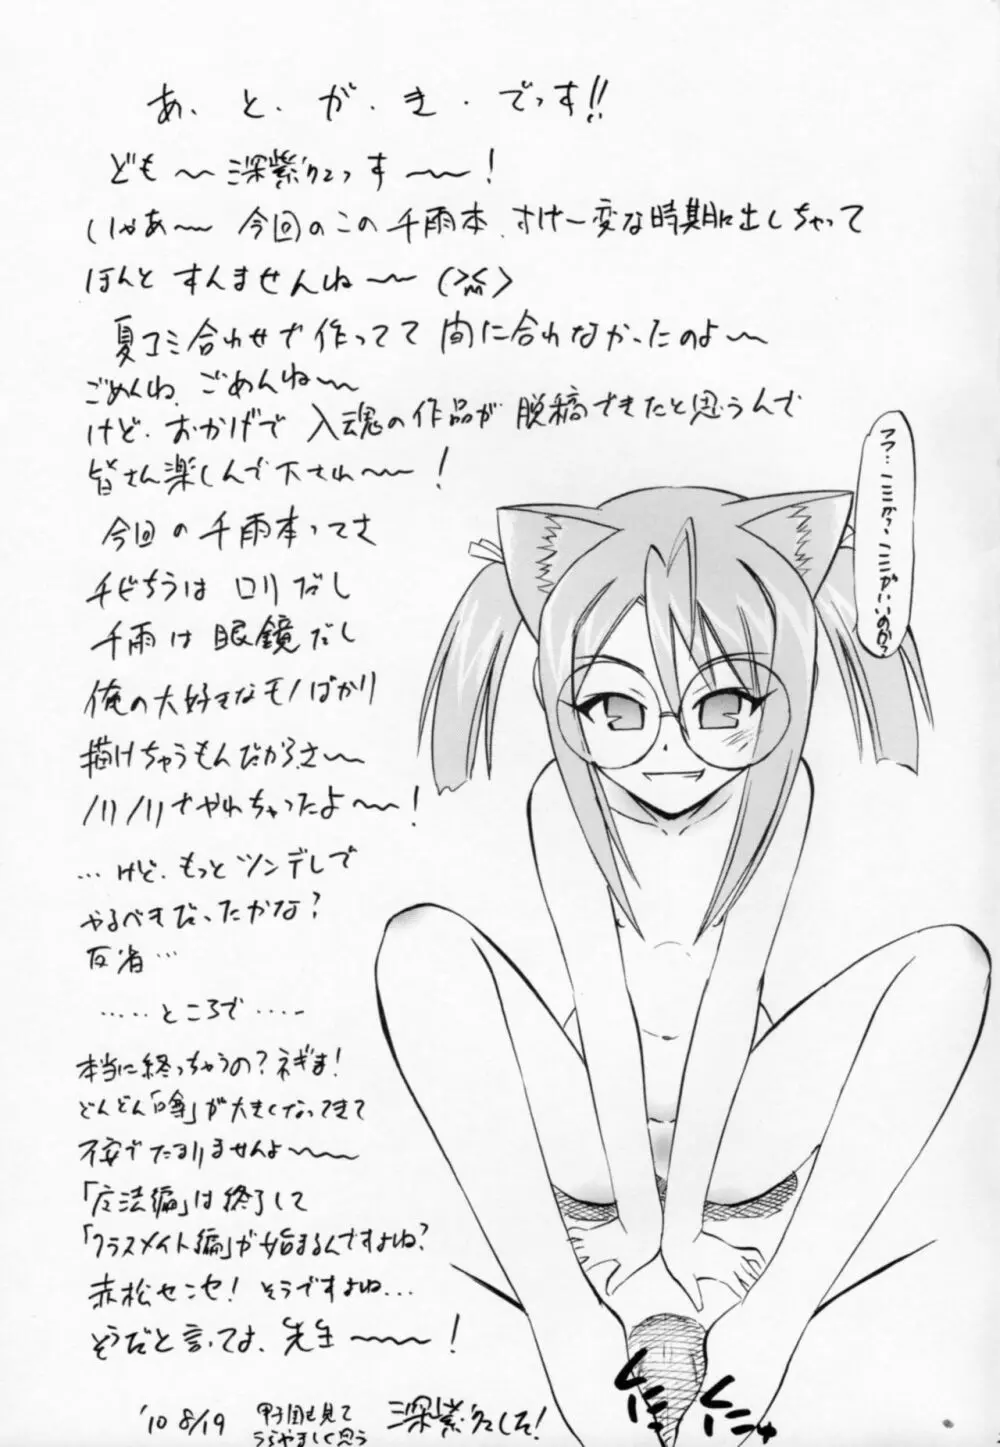 あ・と・が・き・でっす!!
ども〜深紫っす〜!
いやあ〜今回のこの千雨本、すげー変な時期に出しちゃって
ほんとすんませんね〜(>
夏コミ合わせで作ってて間に合わなかったのよ〜
ごめんね、ごめんね〜
けど、おかげで入魂の作品が脱稿できたと思うんで
皆さん楽しんで下され〜!
今回の千雨本ってさ
チビちうはロリだし
千雨は眼鏡だし
俺の大好きなモノばかり
描けちゃうもんだからさ〜
ノリノリでやれちゃったよ〜!
…けど、もっとツンデレで
やるべきだったかな?
反省…
……ところで……
本当に終っちゃうの?ネギま!
どんどん「噂」が大きくなってきて
不安でたまりませんよ〜
「魔法編」は終了して
「クラスメイト編」が始まるんですよね?
赤松センセ!そうですよね…
そうだと言ってよ、先生〜!
'10 8/19
甲子園を見て
うらやましく思う
深紫でした!
フフ…ここか?ここがいいのか?